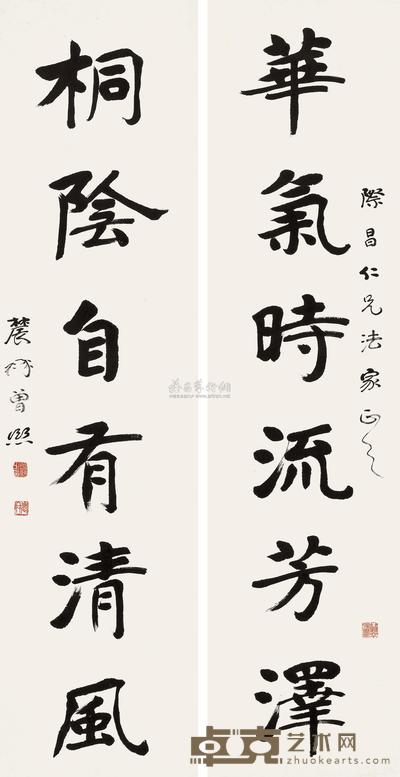 際昌仁兄法家正之
華氣時流芳澤
桐陰自有清風
農髯曾熙
卓克艺术网
www.zhuokearts.com